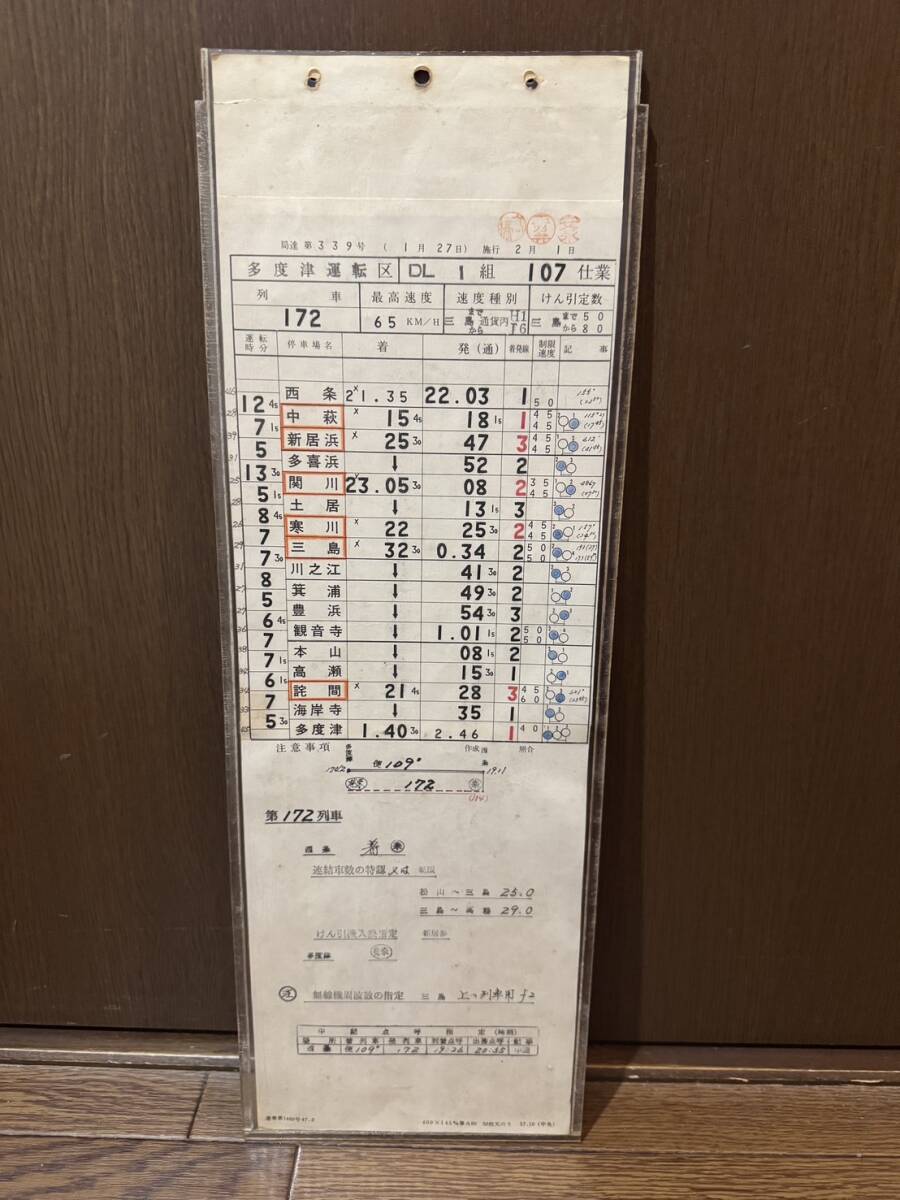 局達第339号 (1月27日) 施行 2月 1日
多度津運転区 DL 1組 107仕業
列車 最高速度 速度種別 けん引定数
172 65 KM/H 三島 まで から 通貨丙 H1 F6 三島 まで50 から80
運転時分 停車場名 着 発(通) 着発線 制限速度 記事
西条 21.35 22.03 1 50
12 45
中萩 15 45 18 15 1 45 45
7 15
新居浜 25 30 47 3 45 45
5
多喜浜 ↓ 52 2
13 30
関川 23.05 30 08 2 35 45
5 15
土居 ↓ 13 15 3
8 45
寒川 22 25 30 2 45 45
7
三島 32 30 0.34 2 50 50
7 30
川之江 ↓ 41 30 2
8
箕浦 ↓ 49 30 2
5
豊浜 ↓ 54 30 3
6 45
観音寺 ↓ 1.01 15 2 50 50
7
本山 ↓ 08 15 2
7 15
高瀬 ↓ 15 30 1
6 15
詫間 21 45 28 3 45 60
7
海岸寺 ↓ 35 1
5 30
多度津 1.40 30 2.46 1 40
注意事項 作成 照合
多度津
便109°
172
第172列車
連結車数の特認
松山~三島 25.0
三島~高松 29.0
新居浜
多度津
注 無線機周波数の指定 三島 上り列車用 f2
中記点呼指定
便109° 172 19.26 20.55